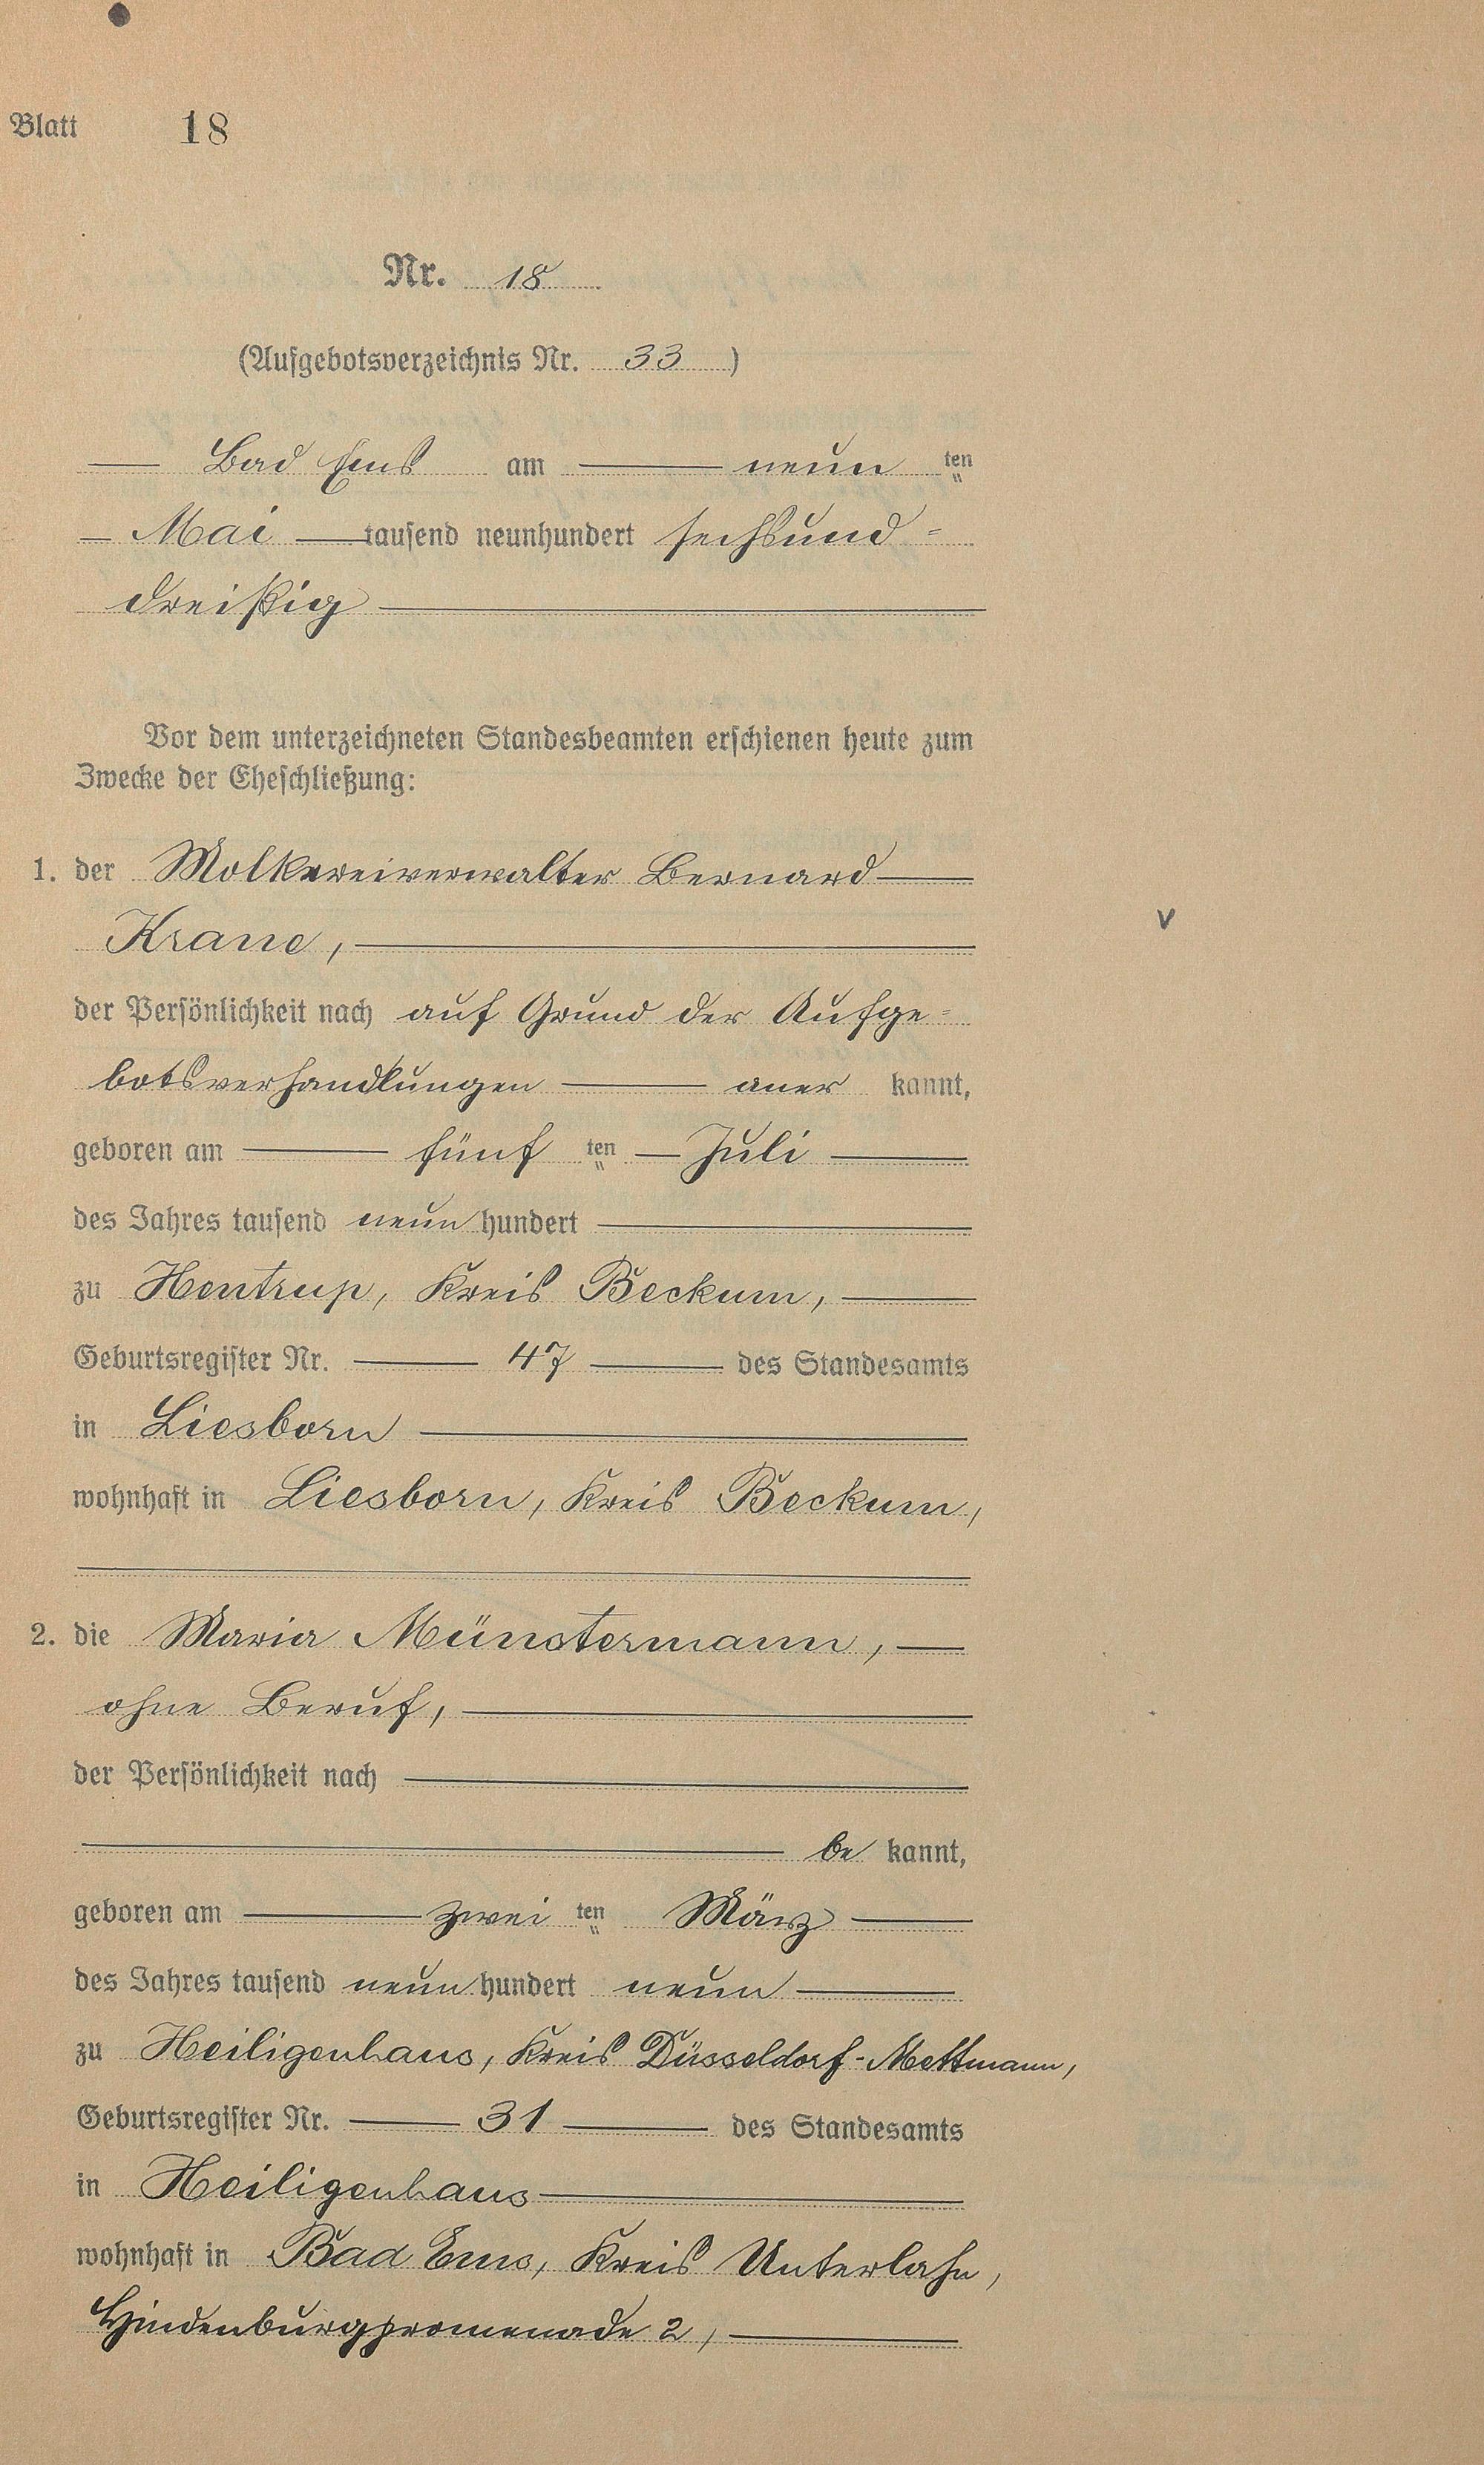 Blatt 18
Nr. 18
(Aufgebotsverzeichnis Nr. 33)
Bad Ems am neun ten
Mai tausend neunhundert sechsund=
dreißig
Vor dem unterzeichneten Standesbeamten erschienen heute zum
Zwecke der Eheschließung:
1. der Molkereiverwalter Bernard
Krane,
der Persönlichkeit nach auf Grund der Aufge=
botsverhandlungen aner kannt,
geboren am fünf ten Juli
des Jahres tausend neun hundert
zu Hentrup, Kreis Beckum,
Geburtsregister Nr. 47 des Standesamts
in Liesborn
wohnhaft in Liesborn, Kreis Beckum,
2. die Maria Münstermann,
ohne Beruf,
der Persönlichkeit nach
be kannt,
geboren am zwei ten März
des Jahres tausend neun hundert neun
zu Heiligenhaus, Kreis Düsseldorf-Mettmann,
Geburtsregister Nr. 31 des Standesamts
in Heiligenhaus
wohnhaft in Bad Ems, Kreis Unterlahn,
Hindenburgpromenade 2,